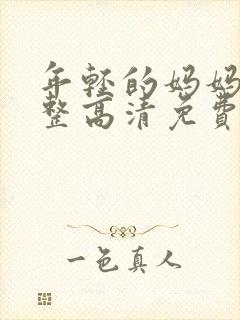 年轻的妈妈
整高清免费
一色真人